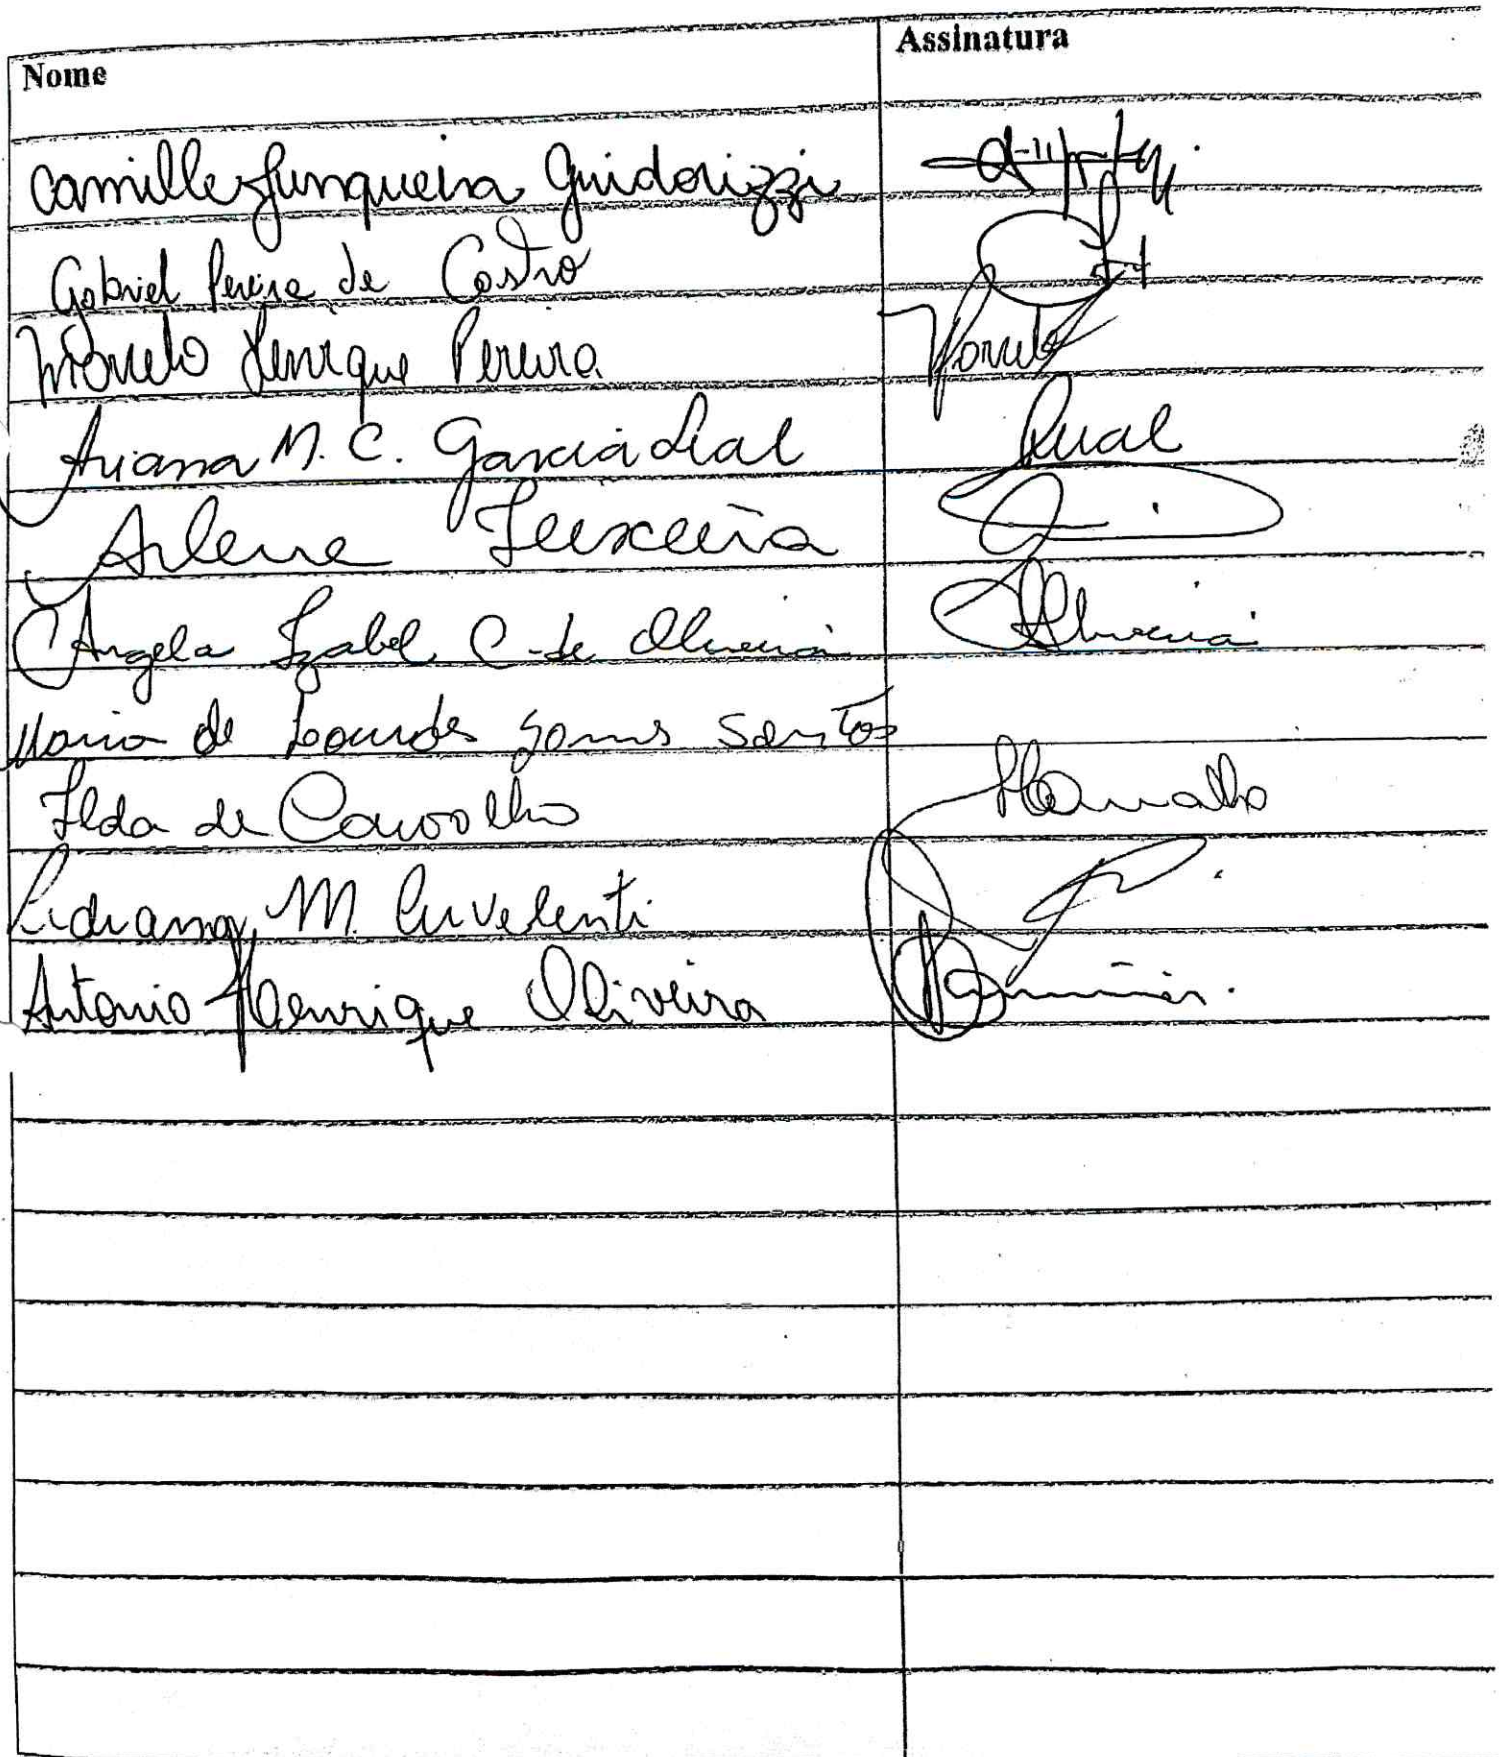 Nome Assinatura
Camille Junqueira Guidorizzi
Gabriel Pereira de Castro
Marcelo Henrique Pereira Marcelo
Ariana M. C. Garcia Leal Leal
Arlene Teixeira
Angela Izabel C. de Oliveira Oliveira
Maria de Lourdes Gomes Santos
Ilda de Carvalho Carvalho
M.
Antonio Henrique Oliveira